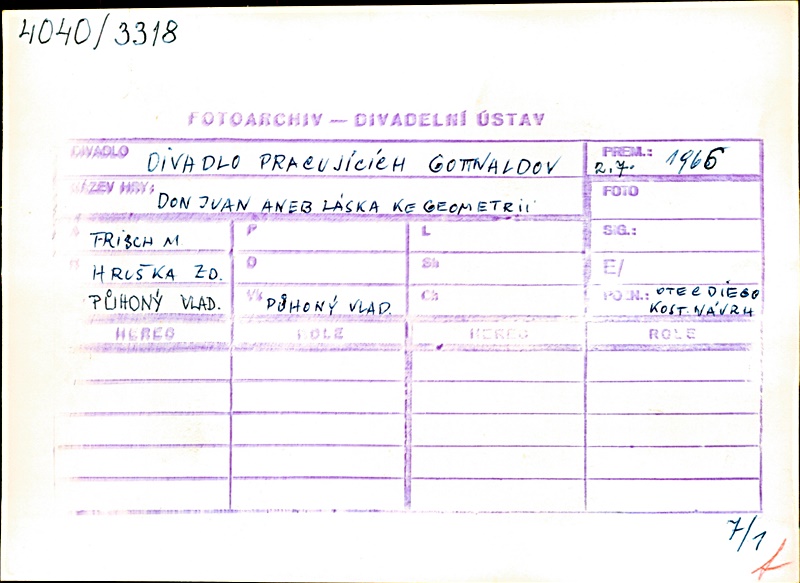 4040/3318
FOTOARCHIV — DIVADELNÍ ÚSTAV
DIVADLO DIVADLO PRACUJÍCÍCH GOTTWALDOV PREM.: 2.7. 1965
NÁZEV HRY: DON JUAN ANEB LÁSKA KE GEOMETRII FOTO
A FRISCH M. P L SIG.:
R HRUŠKA ZD. O Sb E/
PŮHONÝ VLAD. Vk PŮHONÝ VLAD. Ch POZN.: OTEC DIEGO
KOST. NÁVRH
HEREC ROLE HEREC ROLE
7/1